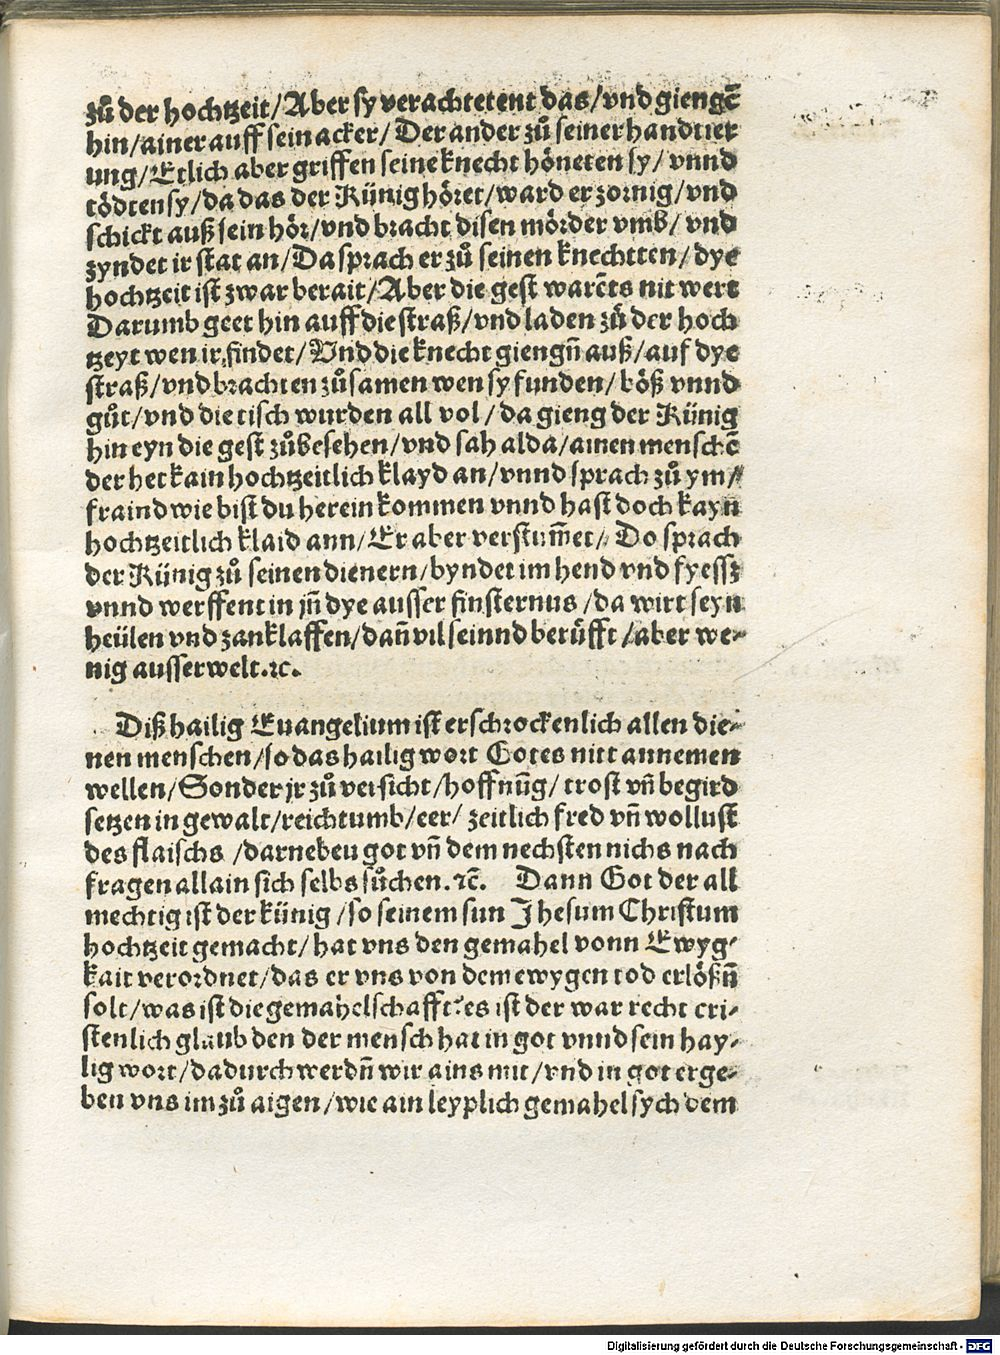 zů der hochtzeit/Aber sy verachtetent das/vnd giengē
hin/ainer auff sein acker/Der ander zů seiner handtier
ung/Etlich aber griffen seine knecht höneten sy/vnnd
tödten sy/da das der Künig höret/ward er zornig/vnd
schickt auß sein hör/vnd bracht disen mörder vmb/vnd
zyndet ir stat an/Da sprach er zů seinen knechtten/dye
hochtzeit ist zwar berait/Aber die gest warēts nit wert
Darumb geet hin auff die straß/vnd laden zů der hoch
tzeyt wen ir findet/Vnd die knecht giengn̄ auß/auf dye
straß/vnd brachten zůsamen wen sy funden/böß vnnd
gůt/vnd die tisch wurden all vol/da gieng der Künig
hin eyn die gest zůbesehen/vnd sah alda/ainen menschē
der het kain hochtzeitlich klayd an/vnnd sprach zů ym/
fraind wie bist du herein kommen vnnd hast doch kayn
hochtzeitlich klaid ann/Er aber verstum̄et/Do sprach
der Künig zů seinen dienern/byndet im hend vnd fyessz
vnnd werffent in jn̄ dye ausser finsternus/da wirt seyn
heülen vnd zanklaffen/dan̄ vil seinnd berüfft/aber we-
nig ausserwelt.ꝛc.
Diß hailig Euangelium ist erschrockenlich allen die-
nen menschen/so das hailig wort Gotes nitt annemen
wellen/Sonder jr zů versicht/hoffnūg/trost vn̄ begird
setzen in gewalt/reichtumb/eer/zeitlich fred vn̄ wollust
des flaischs/darnebeu got vn̄ dem nechsten nichs nach
fragen allain sich selbs sůchen.ꝛc̄. Dann Got der all
mechtig ist der künig/so seinem sun Jhesum Christum
hochtzeit gemacht/hat vns den gemahel vonn Ewyg-
kait verordnet/das er vns von dem ewygen tod erlößn̄
solt/was ist die gemahelschafft?es ist der war recht cri-
stenlich glaub den der mensch hat in got vnnd sein hay-
lig wort/dadurch werdn̄ wir ains mit/vnd in got erge-
ben vns im zů aigen/wie ain leyplich gemahel sych dem
Digitalisierung gefördert durch die Deutsche Forschungsgemeinschaft - DFG